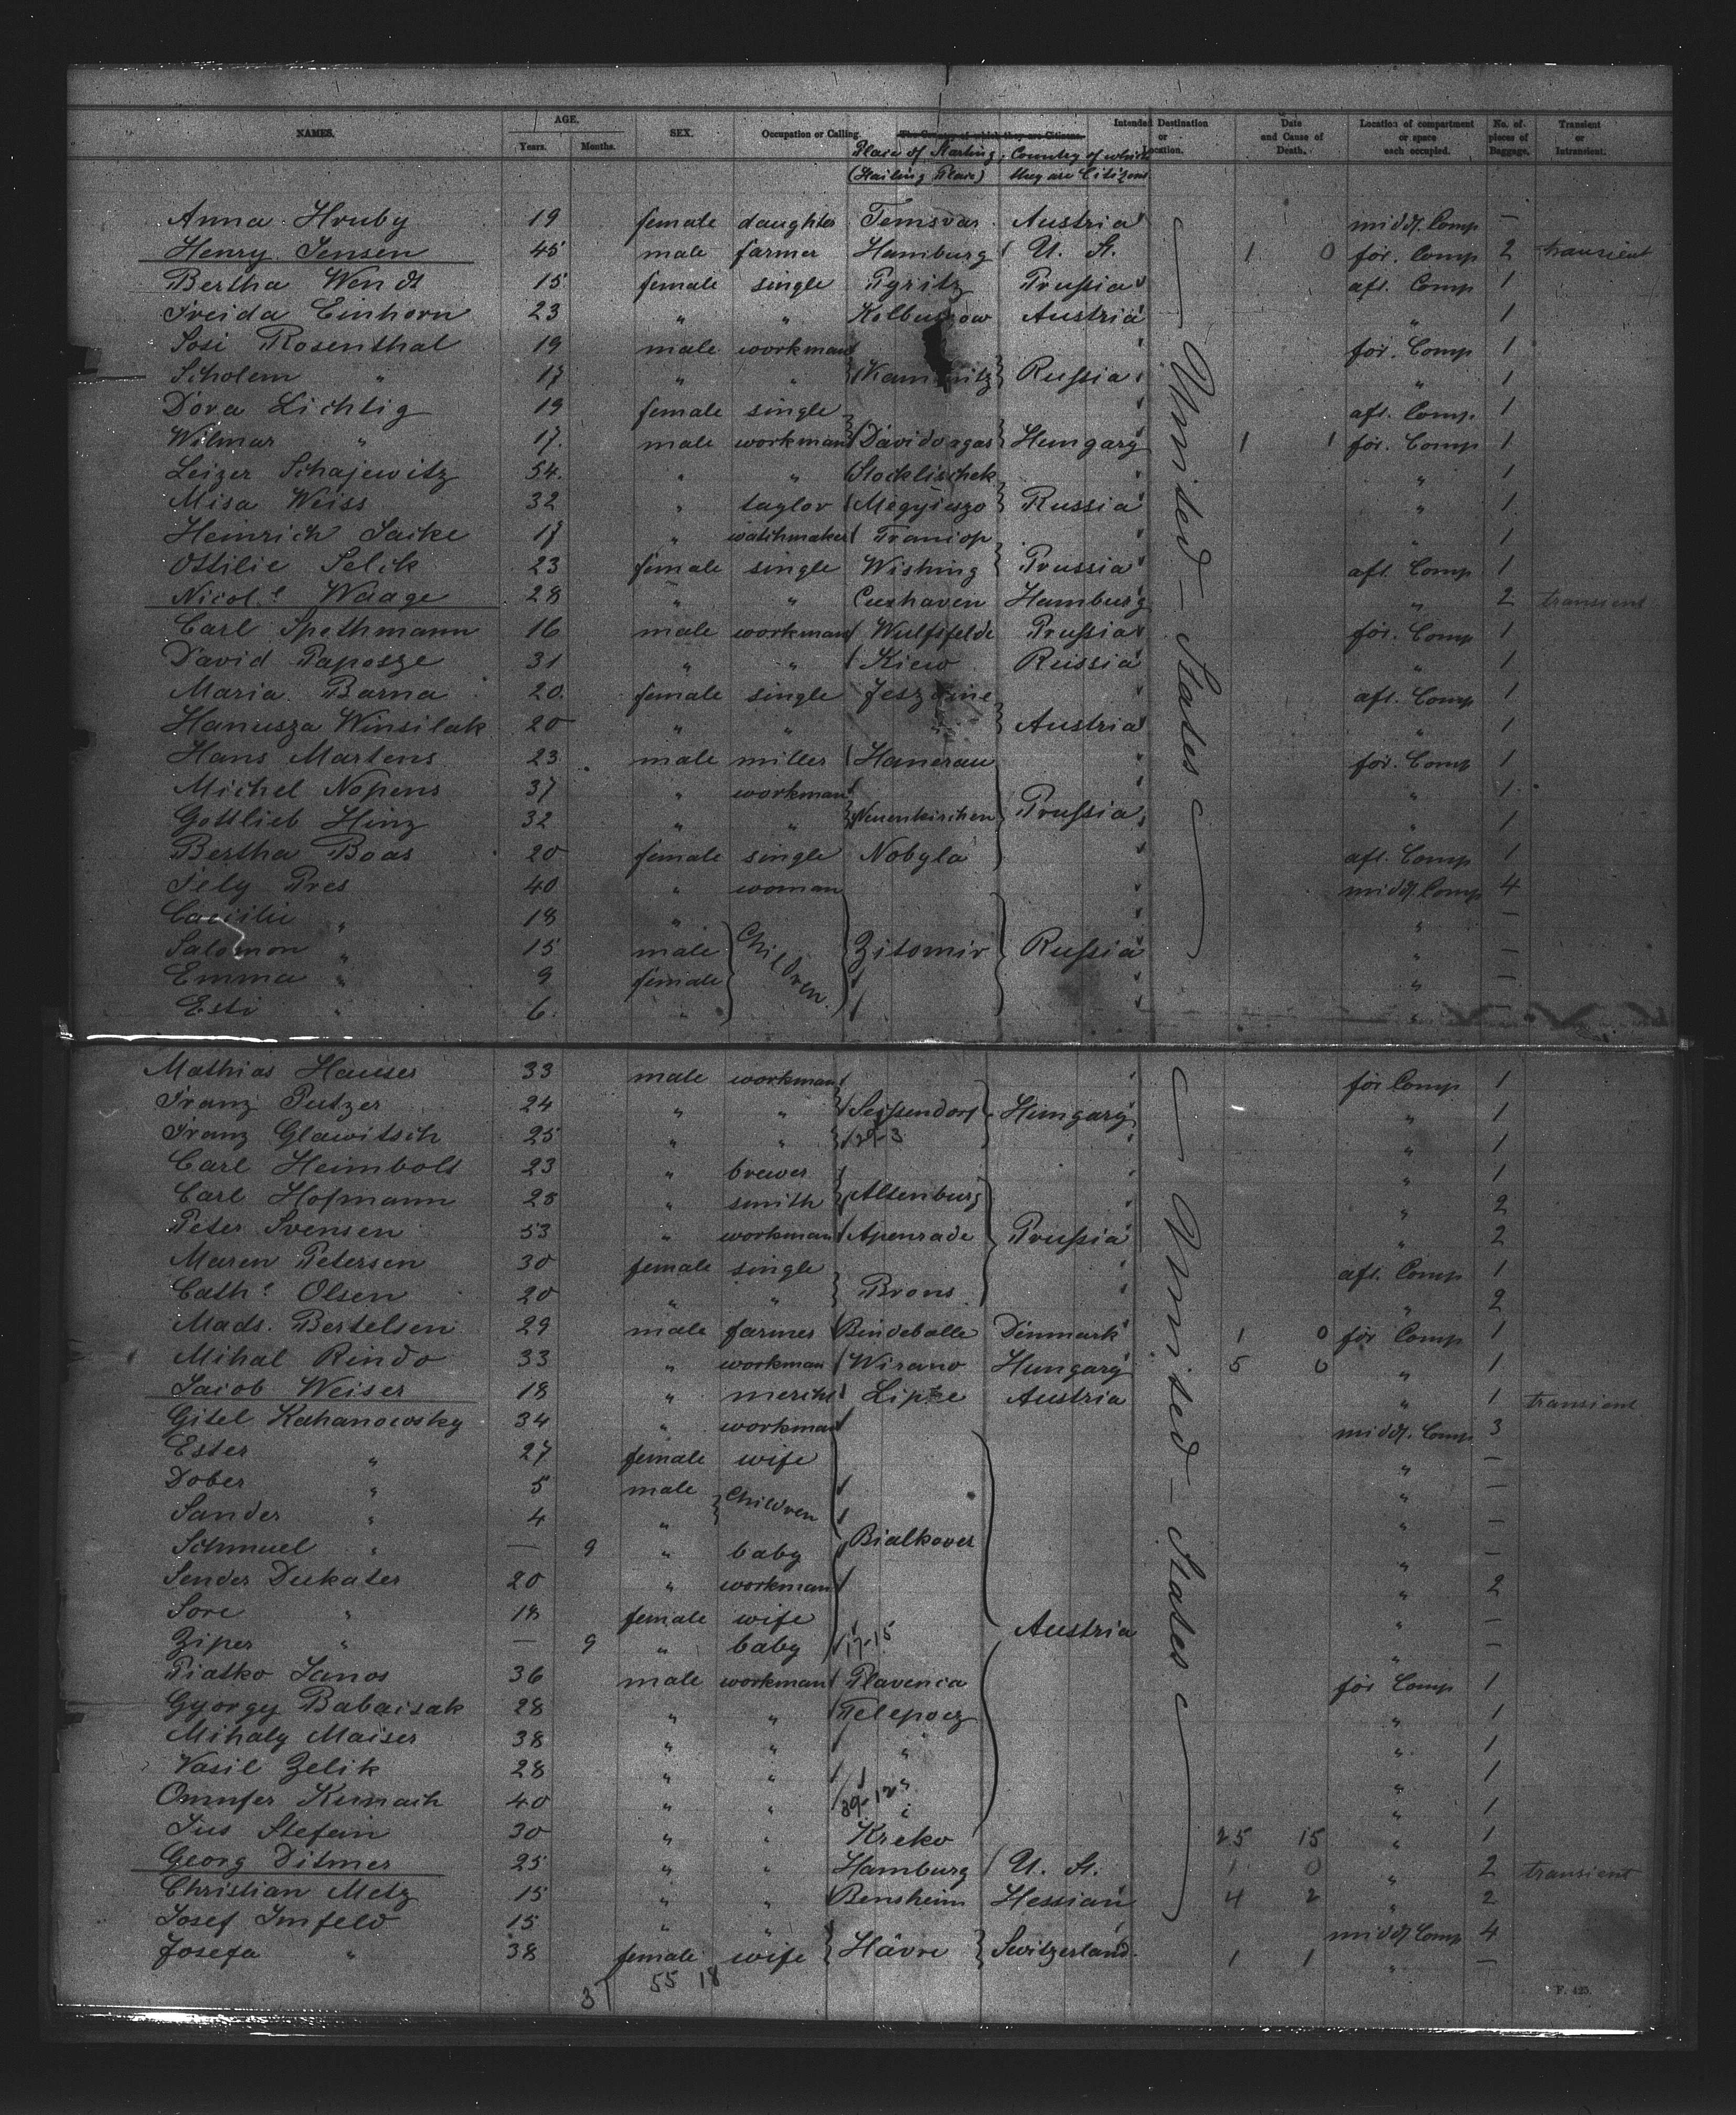 NAMES. AGE. Years. Months. SEX. Occupation or Calling. The Country of which they are Citizens. Intended Destination or Location. Date and Cause of Death. Location of compartment or space each occupied. No. of pieces of Baggage. Transient or Intransient.
Place of Starting, (Hailing Place) Country of which they are Citizens
Anna Hruby 19 female daughter Temsvar Austria midd. Comp —
Henry Jensen 45 male farmer Hamburg U. St. 1 0 for. Comp 2 transient
Bertha Wendt 15 female single Pyritz Prußia aft. Comp 1
Freida Einhorn 23 " " Austria " 1
Rosenthal 19 male workman for. Comp 1
Scholem " 17 " " Rußia " 1
Dora Lichtig 19 female single aft. Comp. 1
Wilmar " 17. male workman Davidvagas Hungary 1 1 for. Comp 1
Leizer Schajewitz 54. " " Stoklischek " 1
Misa Weiss 32 " taylor Megyiuszo Russia " 1
Heinrich Saike 17 " watchmaker " 1
Ottilie Selck 23 female single Wishing Prussia aft. Comp 1
Nicol.e Waage 28 " " Cuxhaven Hamburg " 2 transient
Carl Spethmann 16 male workman Wulfsfelde Prußia for. Comp 1
David Paposze 31 " " Kiew Russia " 1
Maria Barna 20. female single aft. Comp 1
Hanusza Winsilak 20 " " " Austria " 1
Hans Martens 23 male miller Hanerau for. Comp 1
Michel Nopens 37 " workman " 1
Gottlieb Hinz 32 " " Neuenkirchen Prußia " 1
Bertha Boas 20 female single Nobyla aft. Comp 1
Fely Pres 40 " woman midd. Comp 4
Caecilie " 18 " " —
Salomon " 15 male Children Zitomir Rußia " —
Emma " 9 female " —
Esti " 6. " "
United States
Mathias Hauser 33 male workman for Comp 1
Franz Putzer 24 " " Seißendorf Hungary " 1
Franz Glawitsch 25 " " " 1
Carl Heimbolt 23 " brewer " 1
Carl Hofmann 28 " smith Altenburg " 2
Peter Svensen 53 " workman Apenrade Prußia " 2
Maren Petersen 30 female single aft. Comp 1
Cath.e Olsen 20 " " Brons " 2
Mads. Bertelsen 29 male farmer Bindeballe Dänmark 1 0 for Comp 1
Mihal Rindo 33 " workman Wirano Hungary 5 0 " 1
Jacob Weiser 18 " mercht Lipke Austria " 1 transient
Gitel Kahanowsky 34 " workman midd. Comp 3
Ester " 27 female wife " —
Dober " 5 male Children " —
Sander " 4 " " —
Schmuel " — 9 " baby Bialkover " —
Sender Dukater 20 " workman " 2
Sore " 18 female wife " —
Ziper " — 9 " baby 17-15 Austria " —
Piatko Janos 36 male workman Plavenca for Comp 1
Gyorgy Babaisak 28 " " Telepocz " 1
Mihaly Maiser 38 " " " " 1
Vasil Zelik 28 " " " " 1
Onufer Kumaih 40 " " " 1
Jus Stefain 30 " " Kreko 25 15 " 1
Georg Ditmer 25 " " Hamburg U. St. 1 0 " 2 transient
Christian Metz 15 " " Bensheim Hessian 4 2 " 2
Josef Imfeld 15 " " midd Comp 4
Josefa " 38 female wife Hâvre Switzerland 1 1 " —
United States
55 18
F. 425.